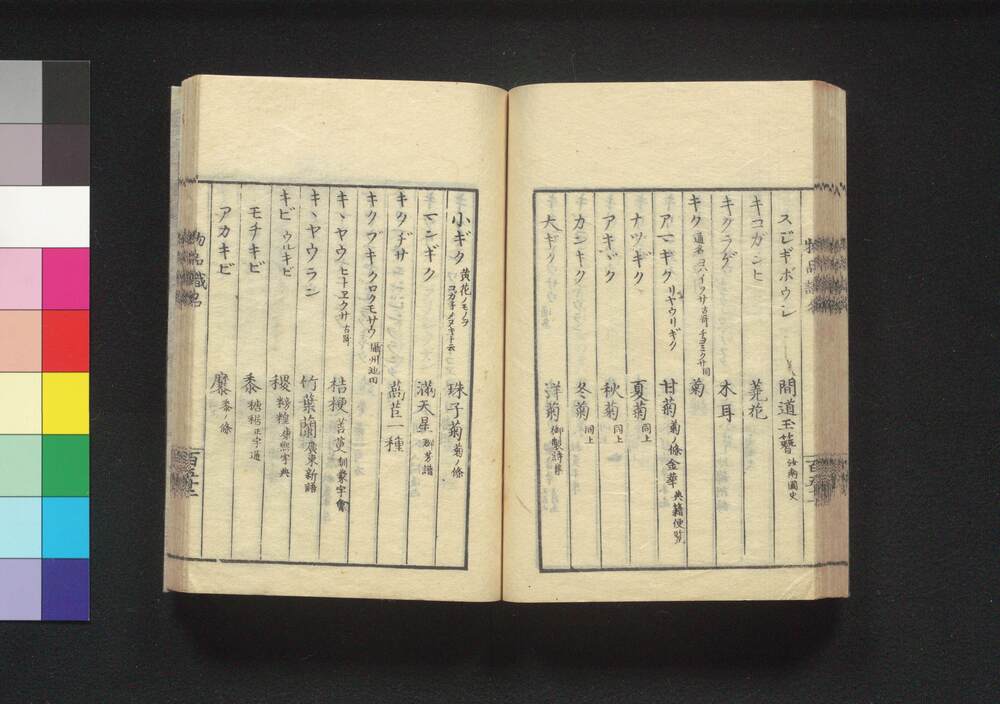 スヂギボウシ 間道玉簪 汝南圃史
キコガンヒ 蕘花
キクラゲ 木耳
キク 通名 ヨハイクサ 古哥 チヨミクサ 同 菊
アマギク リヤウリギク 甘菊 菊ノ條 金華 典籍便覧
ナツギク 夏菊 同上
アキギク 秋菊 同上
カンキク 冬菊 同上
大ギク 洋菊 御製詩集
小ギク 黄花ノモノヲ 珠子菊 菊ノ條
マンギク 滿天星 群芳譜
キクヂサ 萵苣一種
キクブキ
キヽヤウ ヒトヱクサ 古哥 桔梗 苦茰 訓蒙字會
キヽヤウラン 竹葉蘭 廣東新語
キビ ウルキビ 稷 康熙字典
モチキビ 黍 正字通
アカキビ 穈 黍ノ條
物品識名